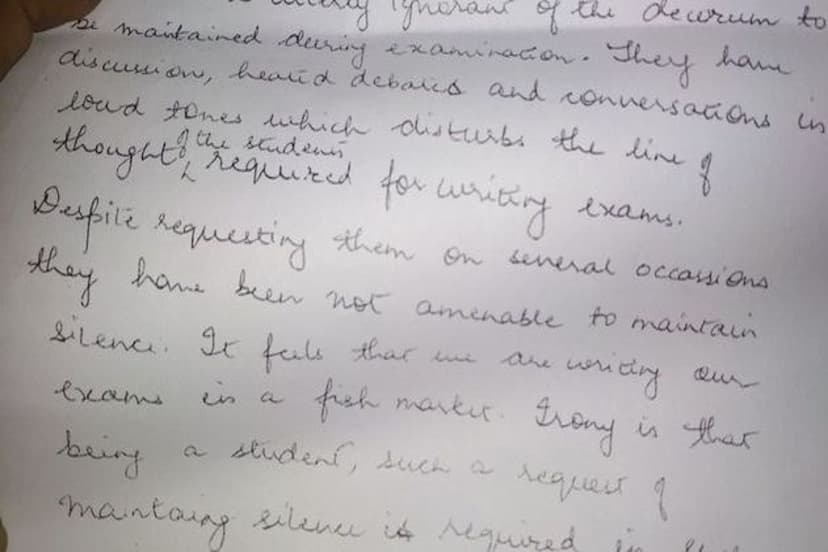 ignorant of the decorum to
be maintained during examination. They have
discussion, heated debates and conversations in
loud tones which disturbs the line of
thought of the students required for writing exams.
Despite requesting them on several occassions
they have been not amenable to maintain
silence. It feels that we are writing our
exams in a fish market. Irony is that
being a student, such a request of
maintaing silence is required in